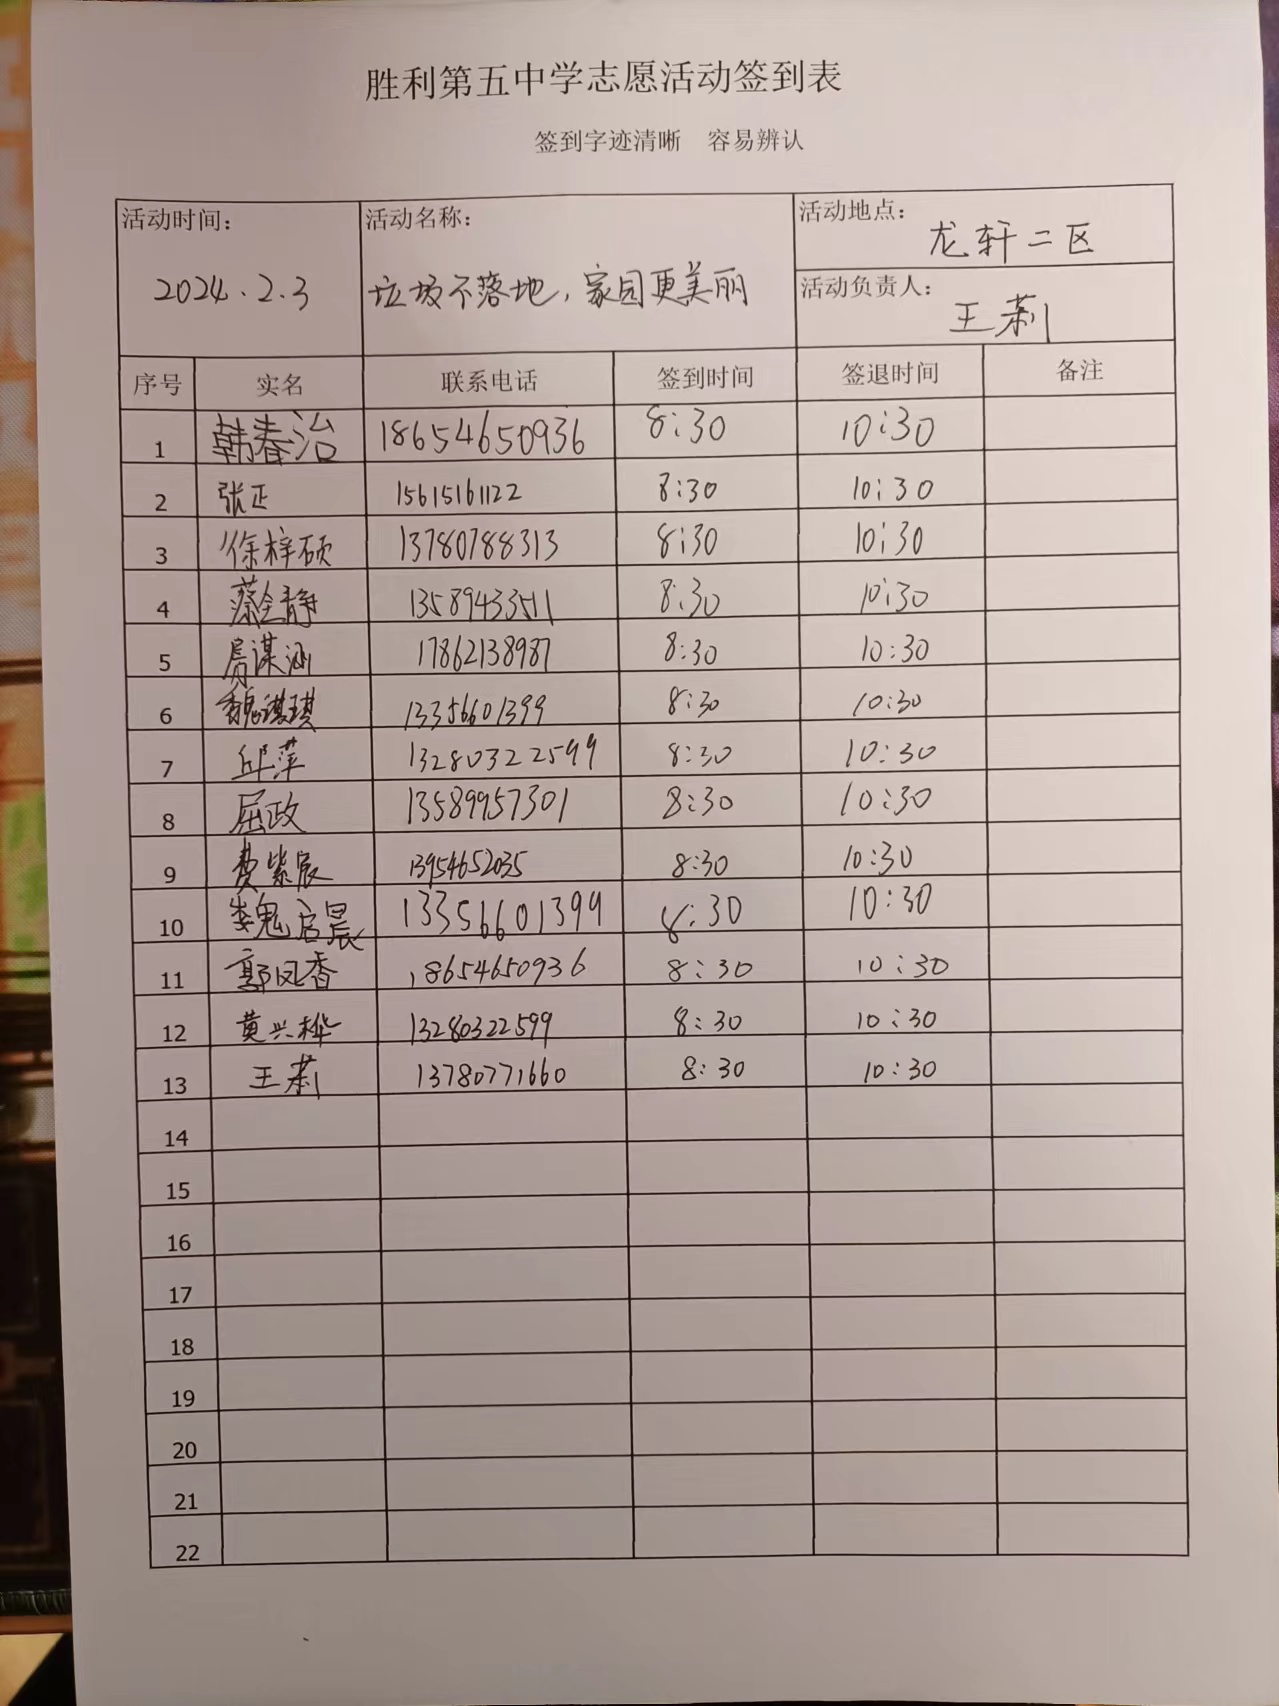 胜利第五中学志愿活动签到表
签到字迹清晰 容易辨认
活动时间: 活动名称: 活动地点: 龙轩二区
2024.2.3 垃圾不落地,家园更美丽 活动负责人: 王莉
序号 实名 联系电话 签到时间 签退时间 备注
1 韩春治 18654650936 8:30 10:30
2 张正 15615161122 8:30 10:30
3 徐梓硕 13780788313 8:30 10:30
4 蔡全静 13589433511 8:30 10:30
5 房谋涵 17862138987 8:30 10:30
6 魏谋琪 13356601399 8:30 10:30
7 邱萍 13280322599 8:30 10:30
8 屈政 13589957301 8:30 10:30
9 费紫辰 13954652035 8:30 10:30
10 魏启晨 13356601399 8:30 10:30
11 郭凤香 18654650936 8:30 10:30
12 黄兴桦 13280322599 8:30 10:30
13 王莉 13780771660 8:30 10:30
14
15
16
17
18
19
20
21
22